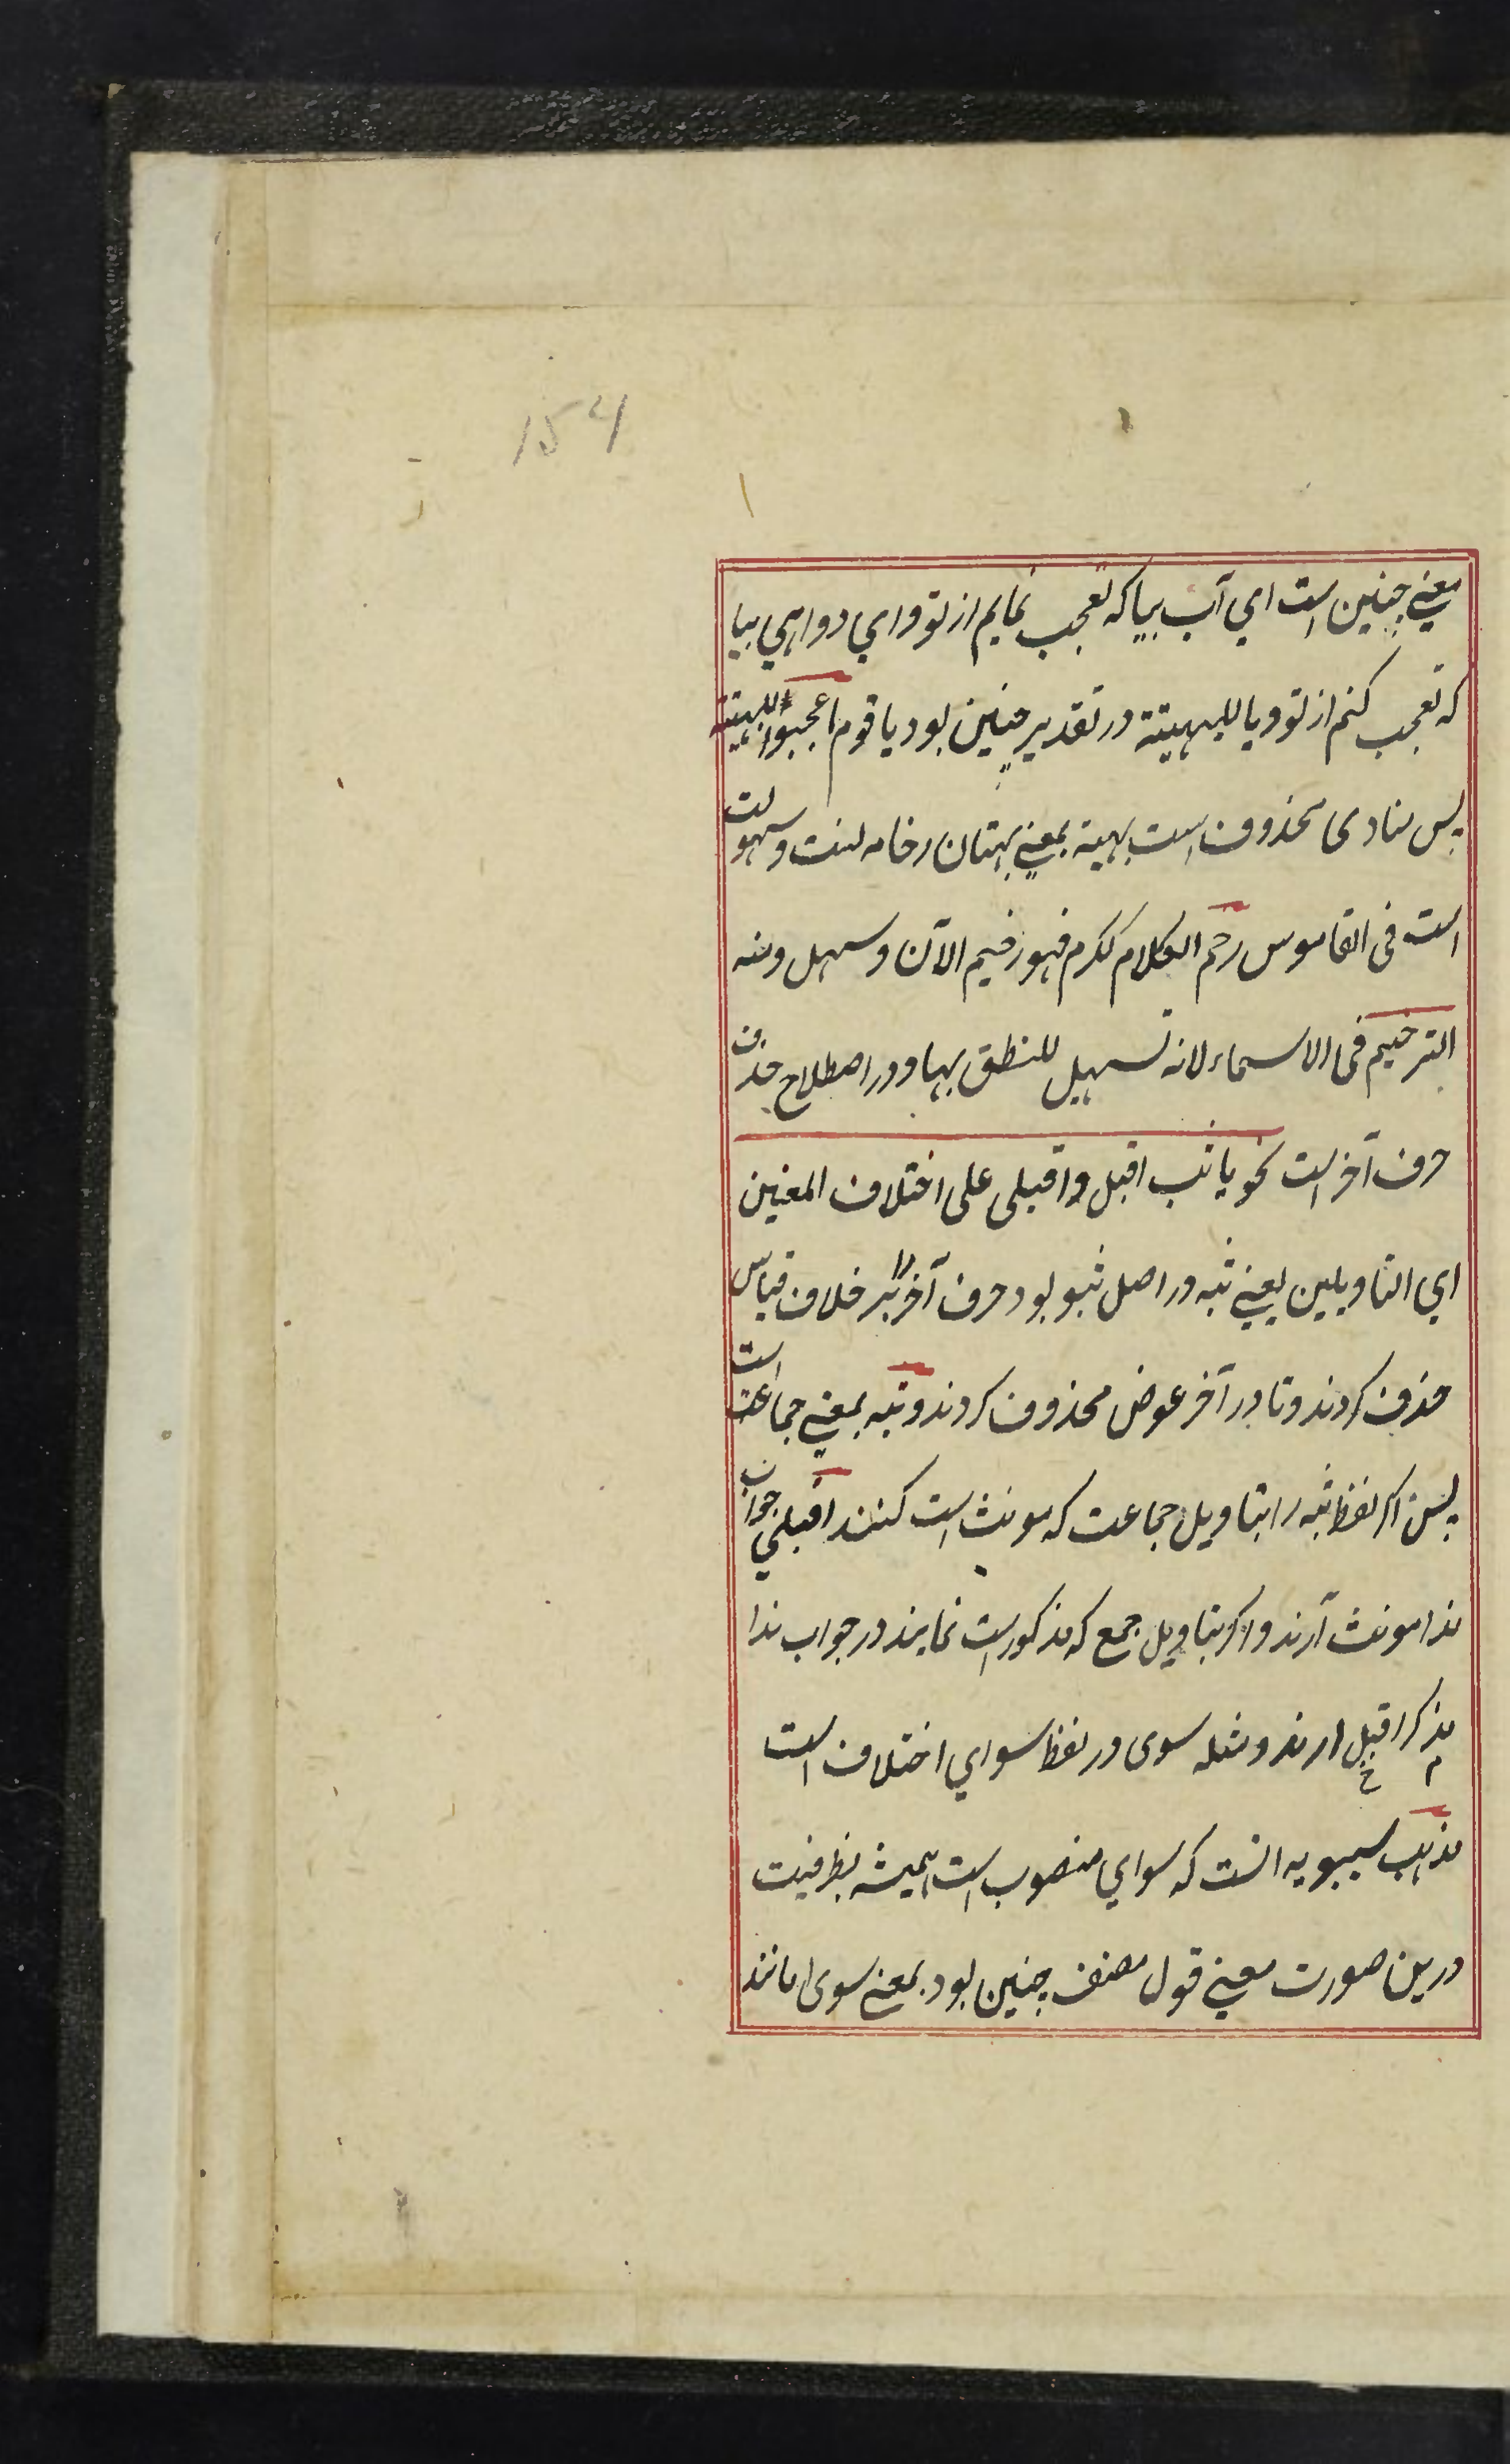 154
معنے چنین است اي آب بیا که تعجب نمایم از تو و اي دواهي بیا
که تعجب کنم از تو و یا للبهیتة در تقدیر چنین بود یا قوم اعجبوا للبهیتة
پس منادی محذوف است بهیته بمعنے بهتان رخامه لینت و سهولت
است فی القاموس رخم الکلام ککرم فهو رخیم الآن و سهل ومنه
الترخیم فی الاسماء لانه تسهیل للنطق بها و در اصطلاح حذف
حرف آخر است نحو یا ثب اقبل و اقبلی علی اختلاف المعنین
اي التاویلین یعنے ثبه در اصل ثبو بود حرف آخر را بر خلاف قیاس
حذف کردند و تا در آخر عوض محذوف کردند و ثبه بمعنے جماعت است
پس اکر لفظ ثبه را بتاویل جماعت که مونث است کنند اقبلي جواب
ندا مونث آرند و اکر بتاویل جمع که مذکور است نمایند در جواب ندا
مذکر اقبل ارند و مثله سوی در لفظ سواي اختلاف است
مذهب سیبویه انست که سواي منصوب است همیشه بظرفیت
درین صورت معنے قول مصنف چنین بود بمعنے سوی مانند